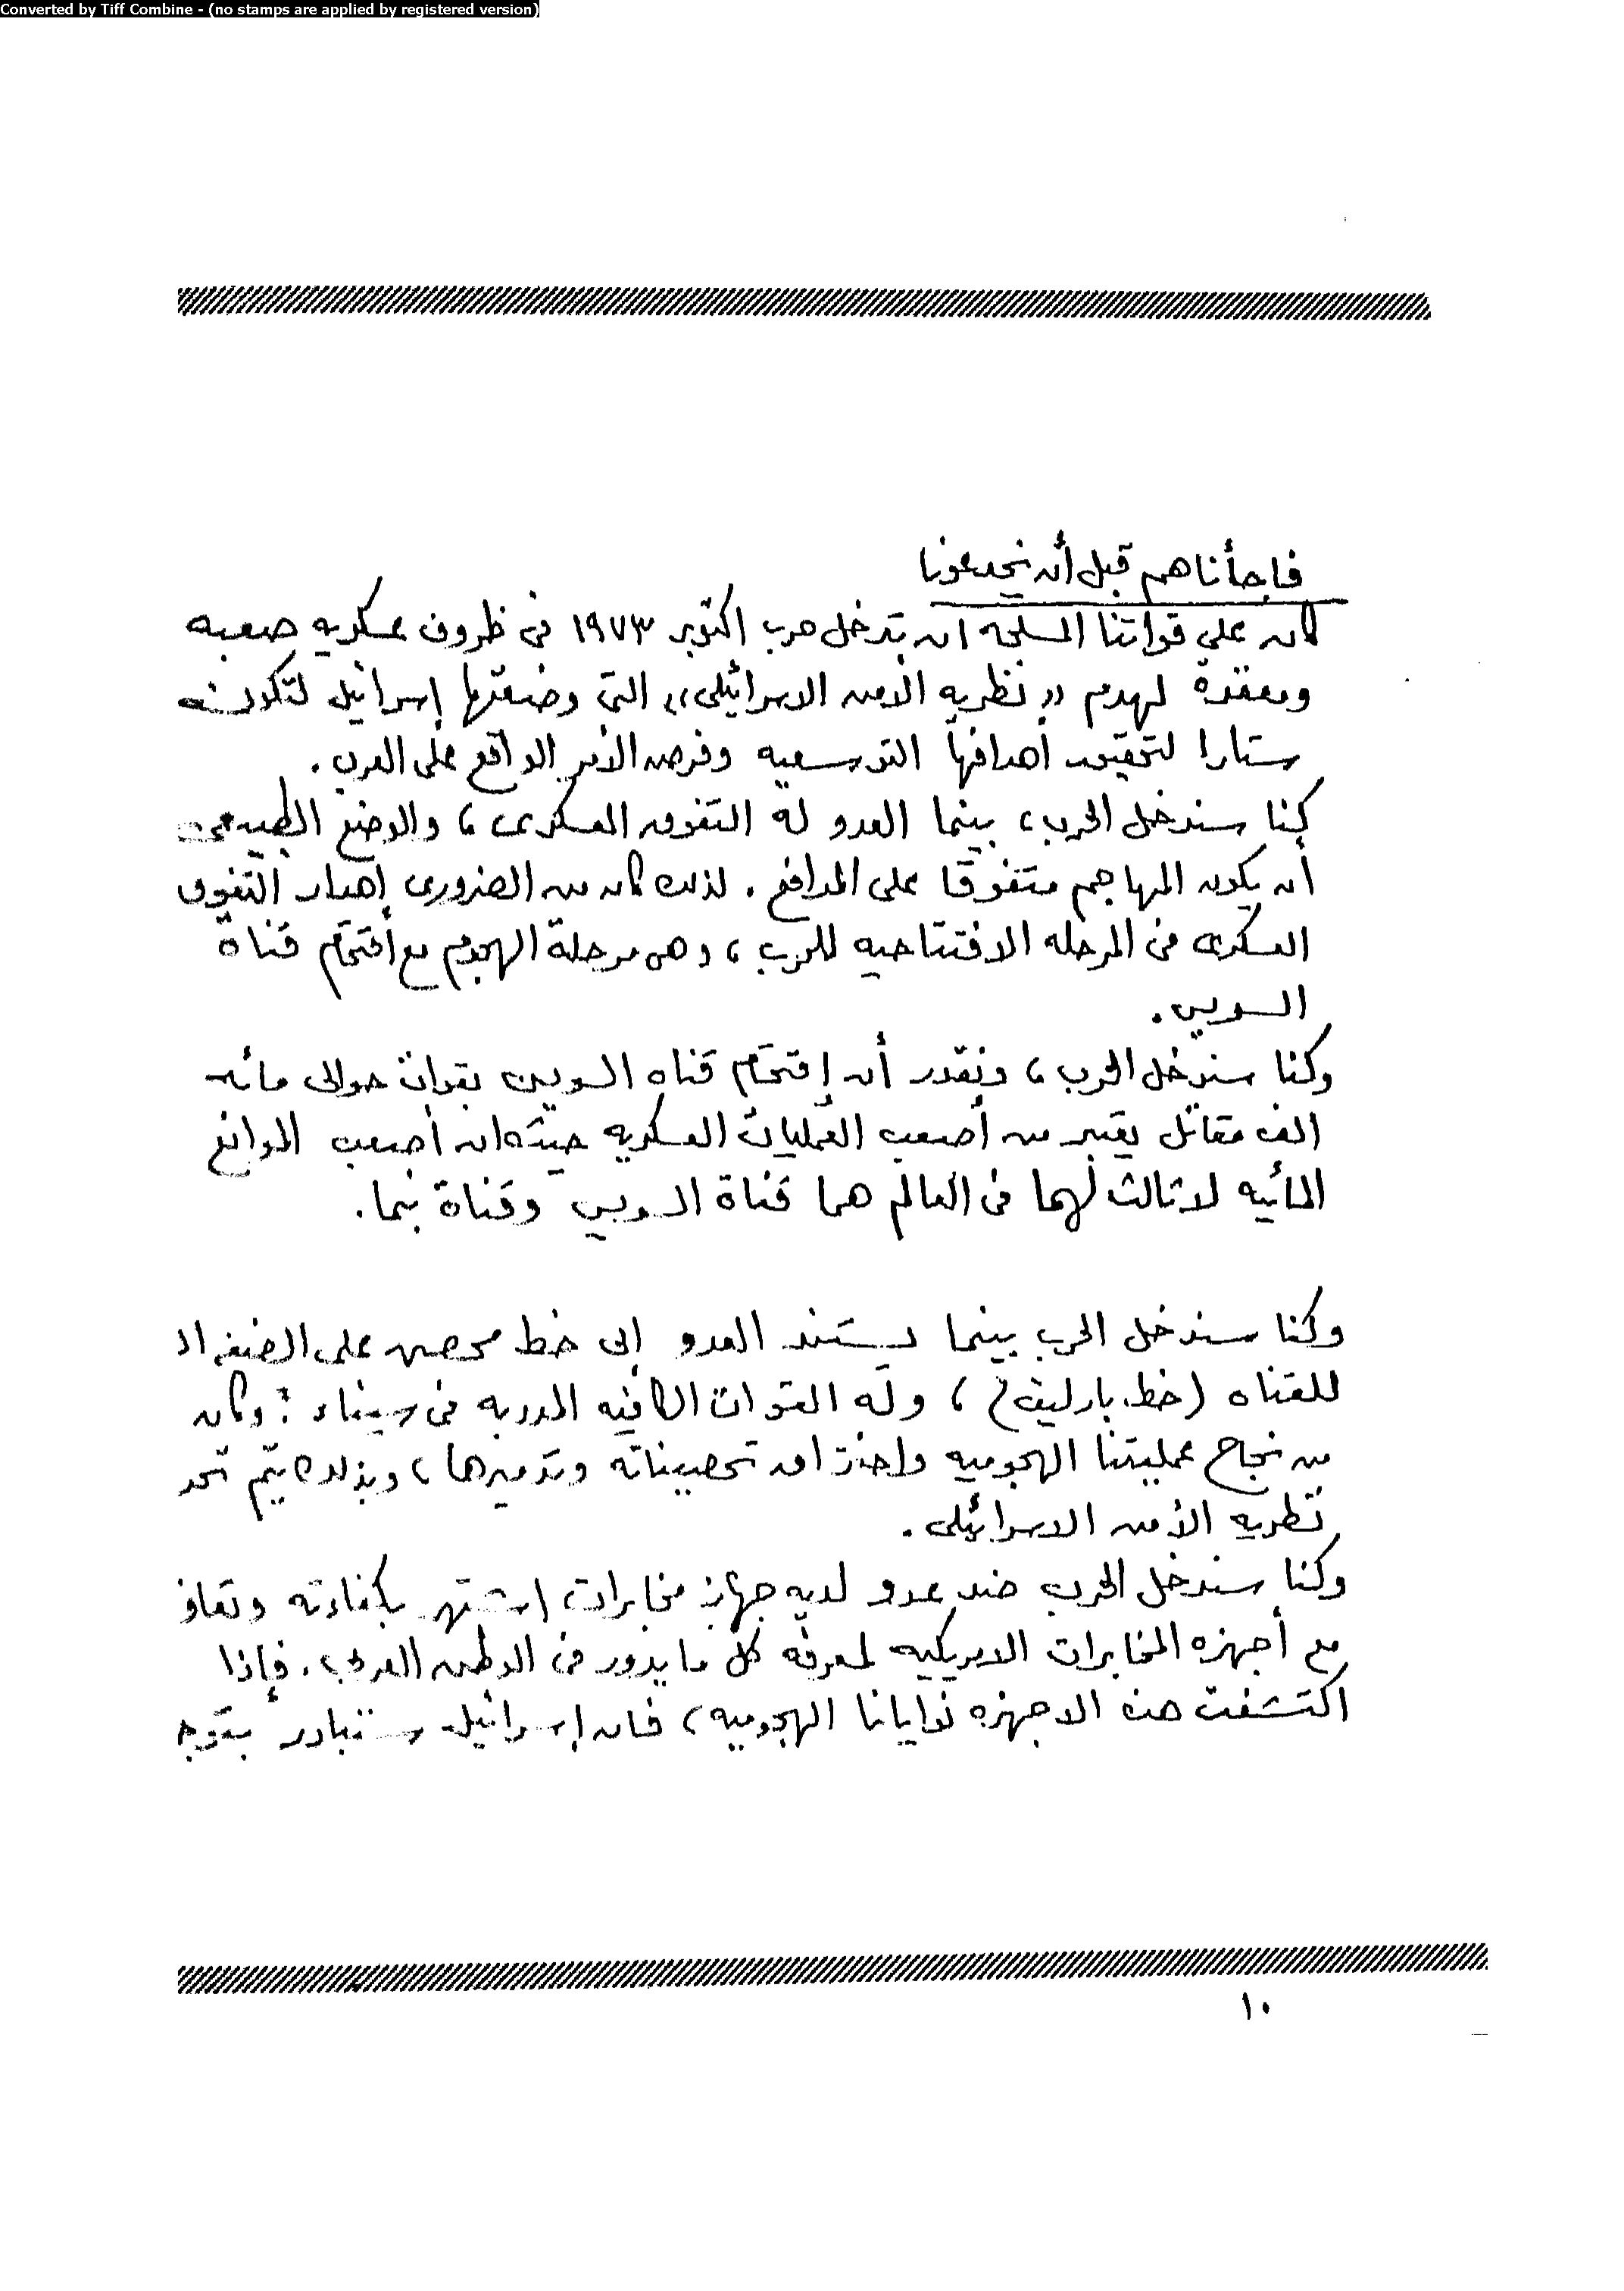 Converted by Tiff Combine - (no stamps are applied by registered version)
فاجأناهم قبل أن يخدعونا
كان على قواتنا المسلحه ان تدخل حرب اكتوبر ١٩٧٣ فى ظروف عسكريه صعبه
ومعقدة لهدم « نظريه الامن الاسرائيلى » التى وضعتها إسرائيل لتكون
ستارا لتحقيق أهدافها التوسعيه وفرض الأمر الواقع على العرب .
كنا سندخل الحرب ، بينما العدو له التفوق العسكرى ، والوضع الطبيعى
أن يكون المهاجم متفوقا على المدافع . لذلك كان من الضرورى إهدار التفوق
العسكرى فى المرحله الافتتاحيه للحرب ، وهى مرحلة الهجوم مع أقتحام قناة
السويس .
وكنا سندخل الحرب ، ونقدر أن إقتحام قناه السويس بقوات حوالى مائه
الف مقاتل يعتبر من أصعب العمليات العسكريه حيث ان أصعب الموانع
المائيه لا ثالث لهما فى العالم هما قناة السويس وقناة بنما .
وكنا سندخل الحرب بينما يستند العدو إلى خط محصن على الضفه ال
للقناه ( خط بارليف ) ، وله القوات الكافيه المدربه فى سيناء ; وكان
من نجاح عمليتنا الهجوميه واختراق تحصيناته وتدميرها ، وبذلك يتم تحد
نظريه الأمن الاسرائيلى .
وكنا سندخل الحرب ضد عدو لديه جهاز مخابرات اشتهر بكفاءته وتعاو
مع أجهزه المخابرات الامريكيه لمعرفه كل ما يدور فى الوطن العربى . فإذا
اكتشفت هذه الاجهزه نوايانا الهجوميه ، فان إسرائيل ستبادر بتوج
١٠